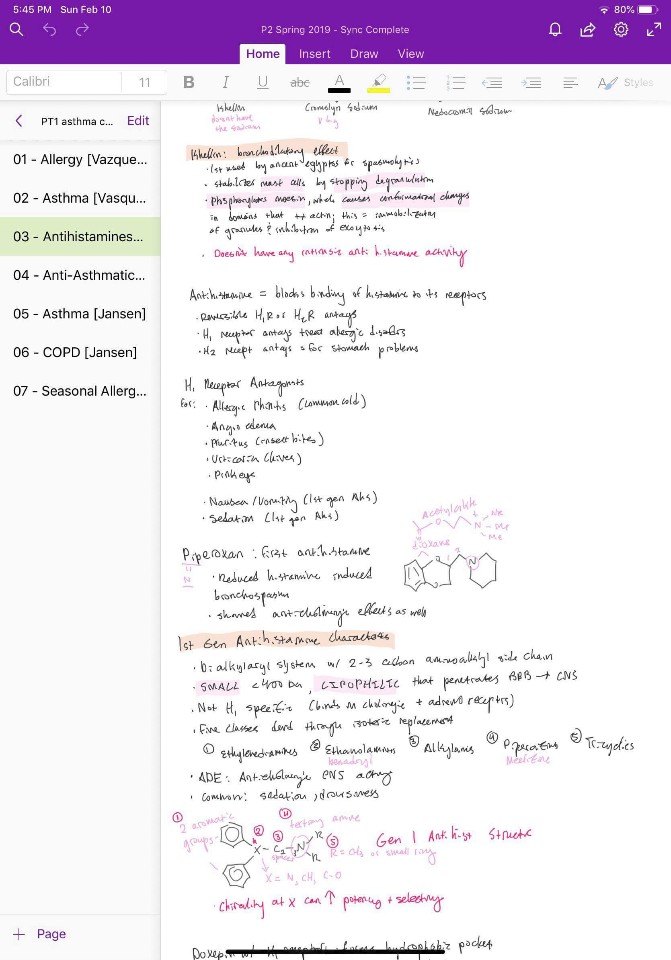 5:45 PM Sun Feb 10
80%
P2 Spring 2019 - Sync Complete
Home Insert Draw View
Calibri 11 B I U abc A Styles
PT1 asthma c... Edit
01 - Allergy [Vazque...
02 - Asthma [Vasqu...
03 - Antihistamines...
04 - Anti-Asthmatic...
05 - Asthma [Jansen]
06 - COPD [Jansen]
07 - Seasonal Allerg...
+ Page
Khellin Cromolyn Sodium Nedocromil Sodium
doesn't have
the sodium
Khellin: bronchodilatory effect
· 1st used by ancient egyptians for spasmolytics
· stabilizes mast cells by stopping degranulation
· Phosphorylates moesin, which causes conformational changes
in domains that ++ actin; this = immobilization
of granules & inhibition of exocytosis
· Doesn't have any intrinsic antihistamine activity
Antihistamine = blocks binding of histamine to its receptors
· Reversible H1R or H2R antags
· H1 receptor antags treat allergic disorders
· H2 recept antags = for stomach problems
H1 Receptor Antagonists
for: · Allergic Rhinitis (common cold)
· Angioedema
· Pruritus (insect bites)
· Urticaria (hives)
· Pinkeye
· Nausea / Vomiting (1st gen AHs)
· Sedation (1st gen AHs)
Acetylcholine
O N+ Me
Me
Me
dioxane
O O N
Piperoxan : first antihistamine
N
· Reduced histamine induced
bronchospasm
· showed anticholinergic effects as well
1st Gen Antihistamine characters
· bialkylaryl system w/ 2-3 carbon aminoalkyl side chain
· SMALL <400 Da, LIPOPHILIC that penetrates BBB → CNS
· Not H1 specific (binds m cholinergic + adreno receptrs)
· Five classes through isosteric replacement
① Ethylenediamines ② Ethanolamines ③ Alkylamines ④ Piperazines ⑤ Tricyclics
benadryl Meclizine
· ADE: Anticholinergic CNS activity
· common: sedation, drowsiness
① 2 aromatic groups
② ③ spacer
④ tertiary amine
⑤ R = CH3 or small ring
X - C2-3 N R R
X = N, CH, C-O
Gen 1 Antihist Structre
· Chirality at X can ↑ potency + selectivity
Doxepin w/ H1 receptor forms hydrophobic pocket